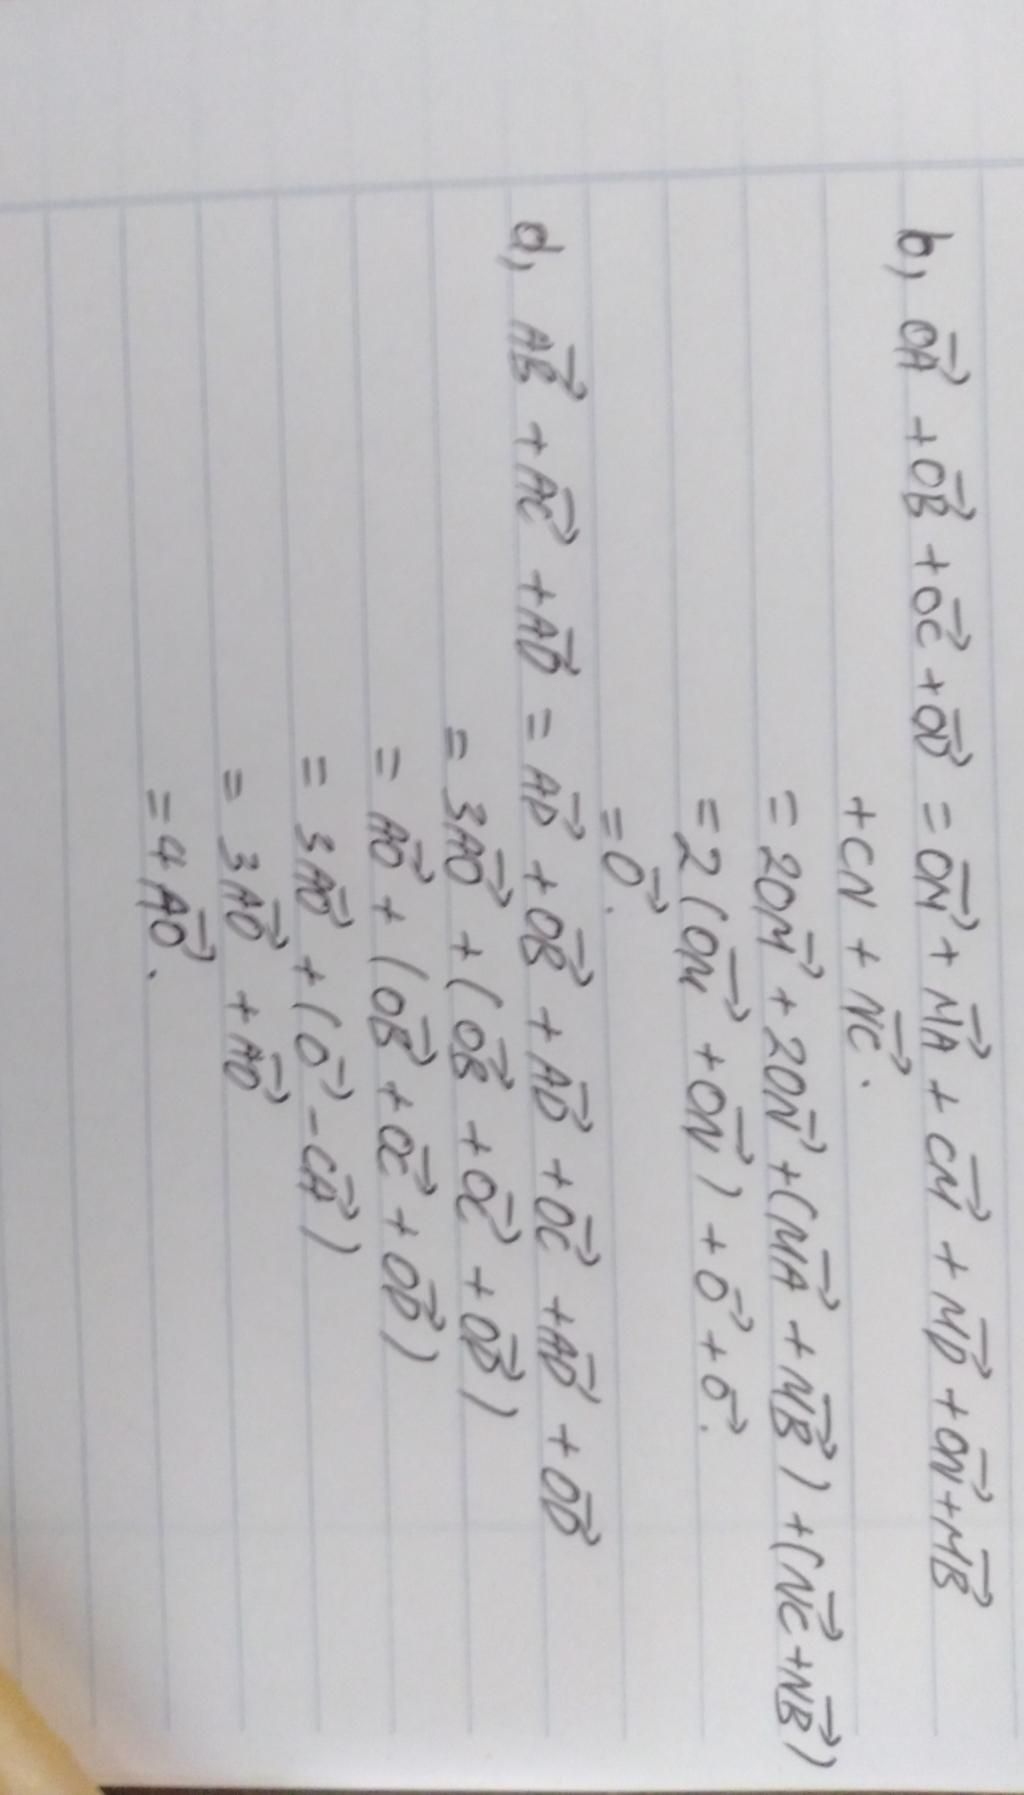 b, $\overrightarrow{OA} + \overrightarrow{OB} + \overrightarrow{OC} + \overrightarrow{OD} = \overrightarrow{OM} + \overrightarrow{MA} + \overrightarrow{CM} + \overrightarrow{MD} + \overrightarrow{ON} + \overrightarrow{MB}$
$+ CN + \overrightarrow{NC}.$
$= 2\overrightarrow{OM} + 2\overrightarrow{ON} + (\overrightarrow{MA} + \overrightarrow{MB}) + (\overrightarrow{NC} + \overrightarrow{NB})$
$= 2(\overrightarrow{OM} + \overrightarrow{ON}) + \overrightarrow{O} + \overrightarrow{O}.$
$= \overrightarrow{O}.$
d, $\overrightarrow{AB} + \overrightarrow{AC} + \overrightarrow{AD} = \overrightarrow{AD} + \overrightarrow{OB} + \overrightarrow{AD} + \overrightarrow{OC} + \overrightarrow{AD} + \overrightarrow{OD}$
$= 3\overrightarrow{AO} + (\overrightarrow{OB} + \overrightarrow{OC} + \overrightarrow{OD})$
$= \overrightarrow{AO} + (\overrightarrow{OB} + \overrightarrow{OC} + \overrightarrow{OD})$
$= 3\overrightarrow{AO} + (\overrightarrow{O} - \overrightarrow{CA})$
$= 3\overrightarrow{AO} + \overrightarrow{AO}$
$= 4\overrightarrow{AO}.$